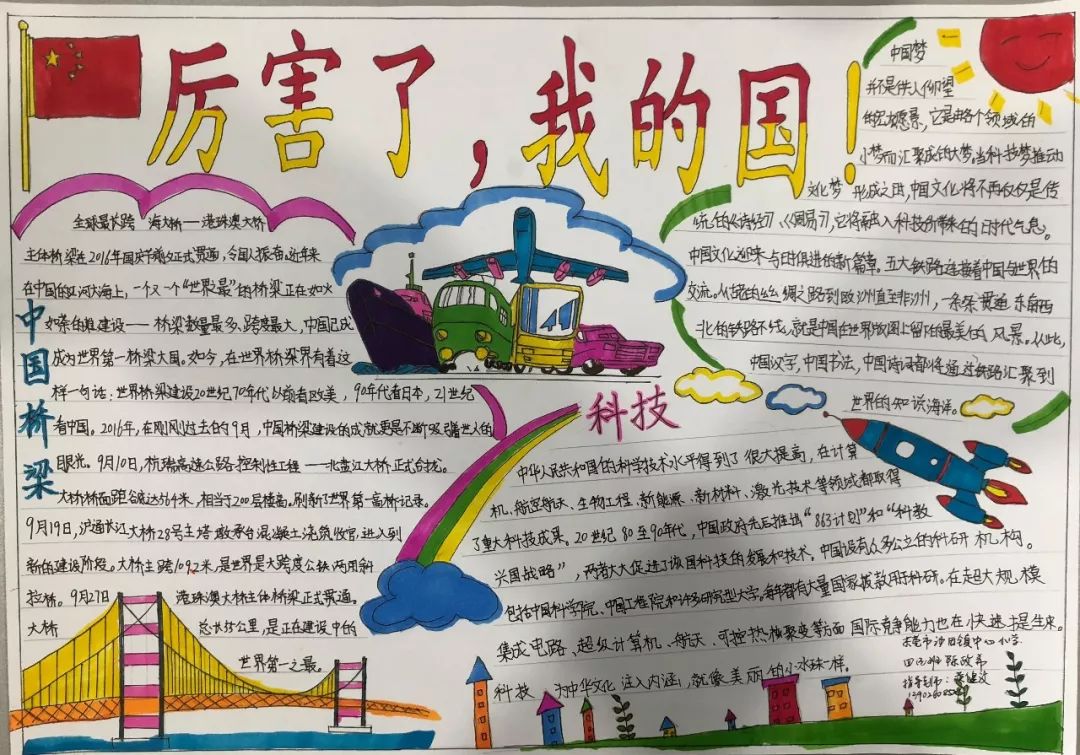 厉害了，我的国！
中国梦
并不是供人仰望
的宏大愿景，它是由各个领域的
小梦而汇聚成的大梦。当科技梦推动
文化梦 形成之时，中国文化将不再仅仅是传
统的《诗经》《周易》，它将融入科技价值的时代气息。
中国文化迎来与时俱进的新篇章。五大铁路连接着中国与世界的
交流。从古路的丝绸之路到欧洲直至非洲，一条条贯通东南西
北的铁路不线，就是中国在世界版图上留下的最美的风景。从此，
中国汉字，中国书法，中国诗词都将通过铁路汇聚到
世界的知识海洋。
中国桥梁
全球最长跨 海大桥——港珠澳大桥
主体桥梁在2016年国庆节前夕正式贯通，令国人振奋。近年来
在中国的江河大海上，一个又一个“世界最”的桥梁正在如火
如荼的推建设——桥梁数量最多、跨度最大，中国已成
成为世界第一桥梁大国。如今，在世界桥梁界有着这
样一句话：世界桥梁建设20世纪70年代以前看欧美，90年代看日本，21世纪
看中国。2016年，在刚刚过去的9月，中国桥梁建设的成就更是不断吸引着世人的
眼光。9月10日，杭瑞高速公路控制性工程——北盘江大桥正式合拢。
大桥桥面距谷底达564米，相当于200层楼高。刷新了世界第一高桥记录。
9月19日，沪通长江大桥28号主塔墩承台混凝土浇筑收官，进入到
新的建设阶段。大桥主跨1092米，是世界最大跨度公铁两用斜
拉桥。9月27日 港珠澳大桥主体桥梁正式贯通。
大桥 总长55公里，是正在建设中的
世界第一之最。
科技
中华人民共和国的科学技术水平得到了很大提高，在计算
机、航空航天、生物工程、新能源、新材料、激光技术等领域都取得
了重大科技成果。20世纪80至90年代，中国政府先后推出“863计划”和“科教
兴国战略”，两者大大促进了该国科技的发展和技术。中国设有众多公立的科研机构。
包括中国科学院、中国工程院和许多研究型大学。每年都有大量国家拨款用于科研。在超大规模
集成电路、超级计算机、航天、可控热核聚变等方面国际竞争能力也在快速提生来。
科技 为中华文化注入内涵，就像美丽的小水珠一样。
东莞市沙田镇中心小学
指导老师：